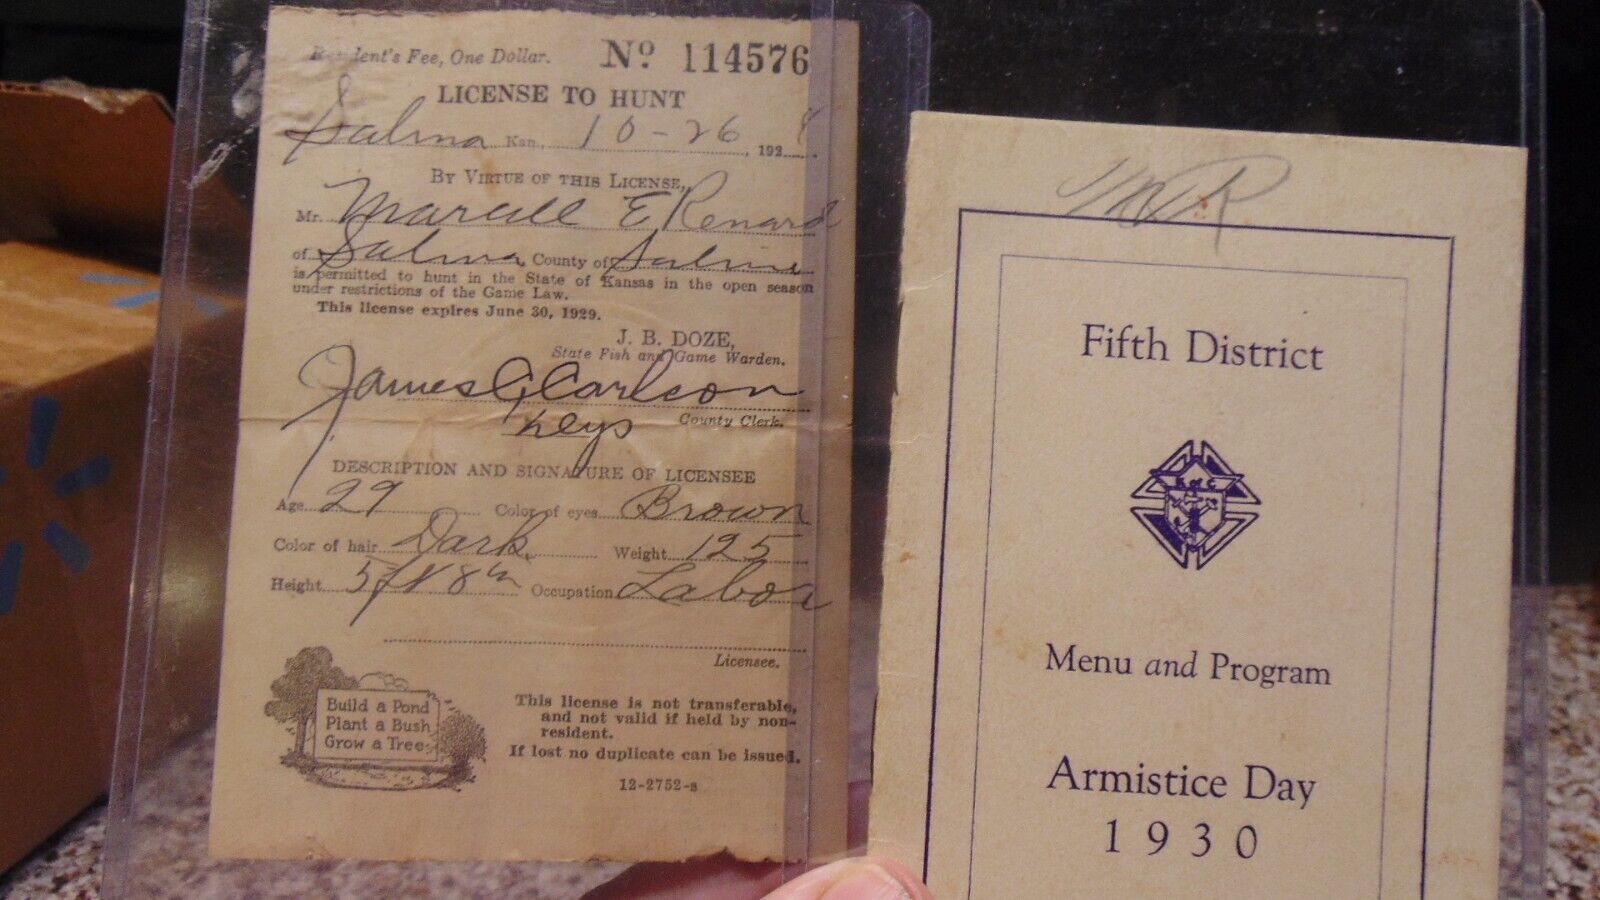 Resident's Fee, One Dollar. No. 114576
LICENSE TO HUNT
Salina Kan., 10-26, 1928
BY VIRTUE OF THIS LICENSE,
Mr. Marcell E Renard
of Salina County of Saline
is permitted to hunt in the State of Kansas in the open season
under restrictions of the Game Law.
This license expires June 30, 1929.
J. B. DOZE,
State Fish and Game Warden.
James G Carlson
County Clerk.
DESCRIPTION AND SIGNATURE OF LICENSEE
Age 29 Color of eyes Brown
Color of hair Dark Weight 125
Height 5 ft 8 in Occupation Labor
Licensee.
Build a Pond
Plant a Bush
Grow a Tree
This license is not transferable,
and not valid if held by non-
resident.
If lost no duplicate can be issued.
12-2752-s
MR
Fifth District
K of C
Menu and Program
Armistice Day
1930